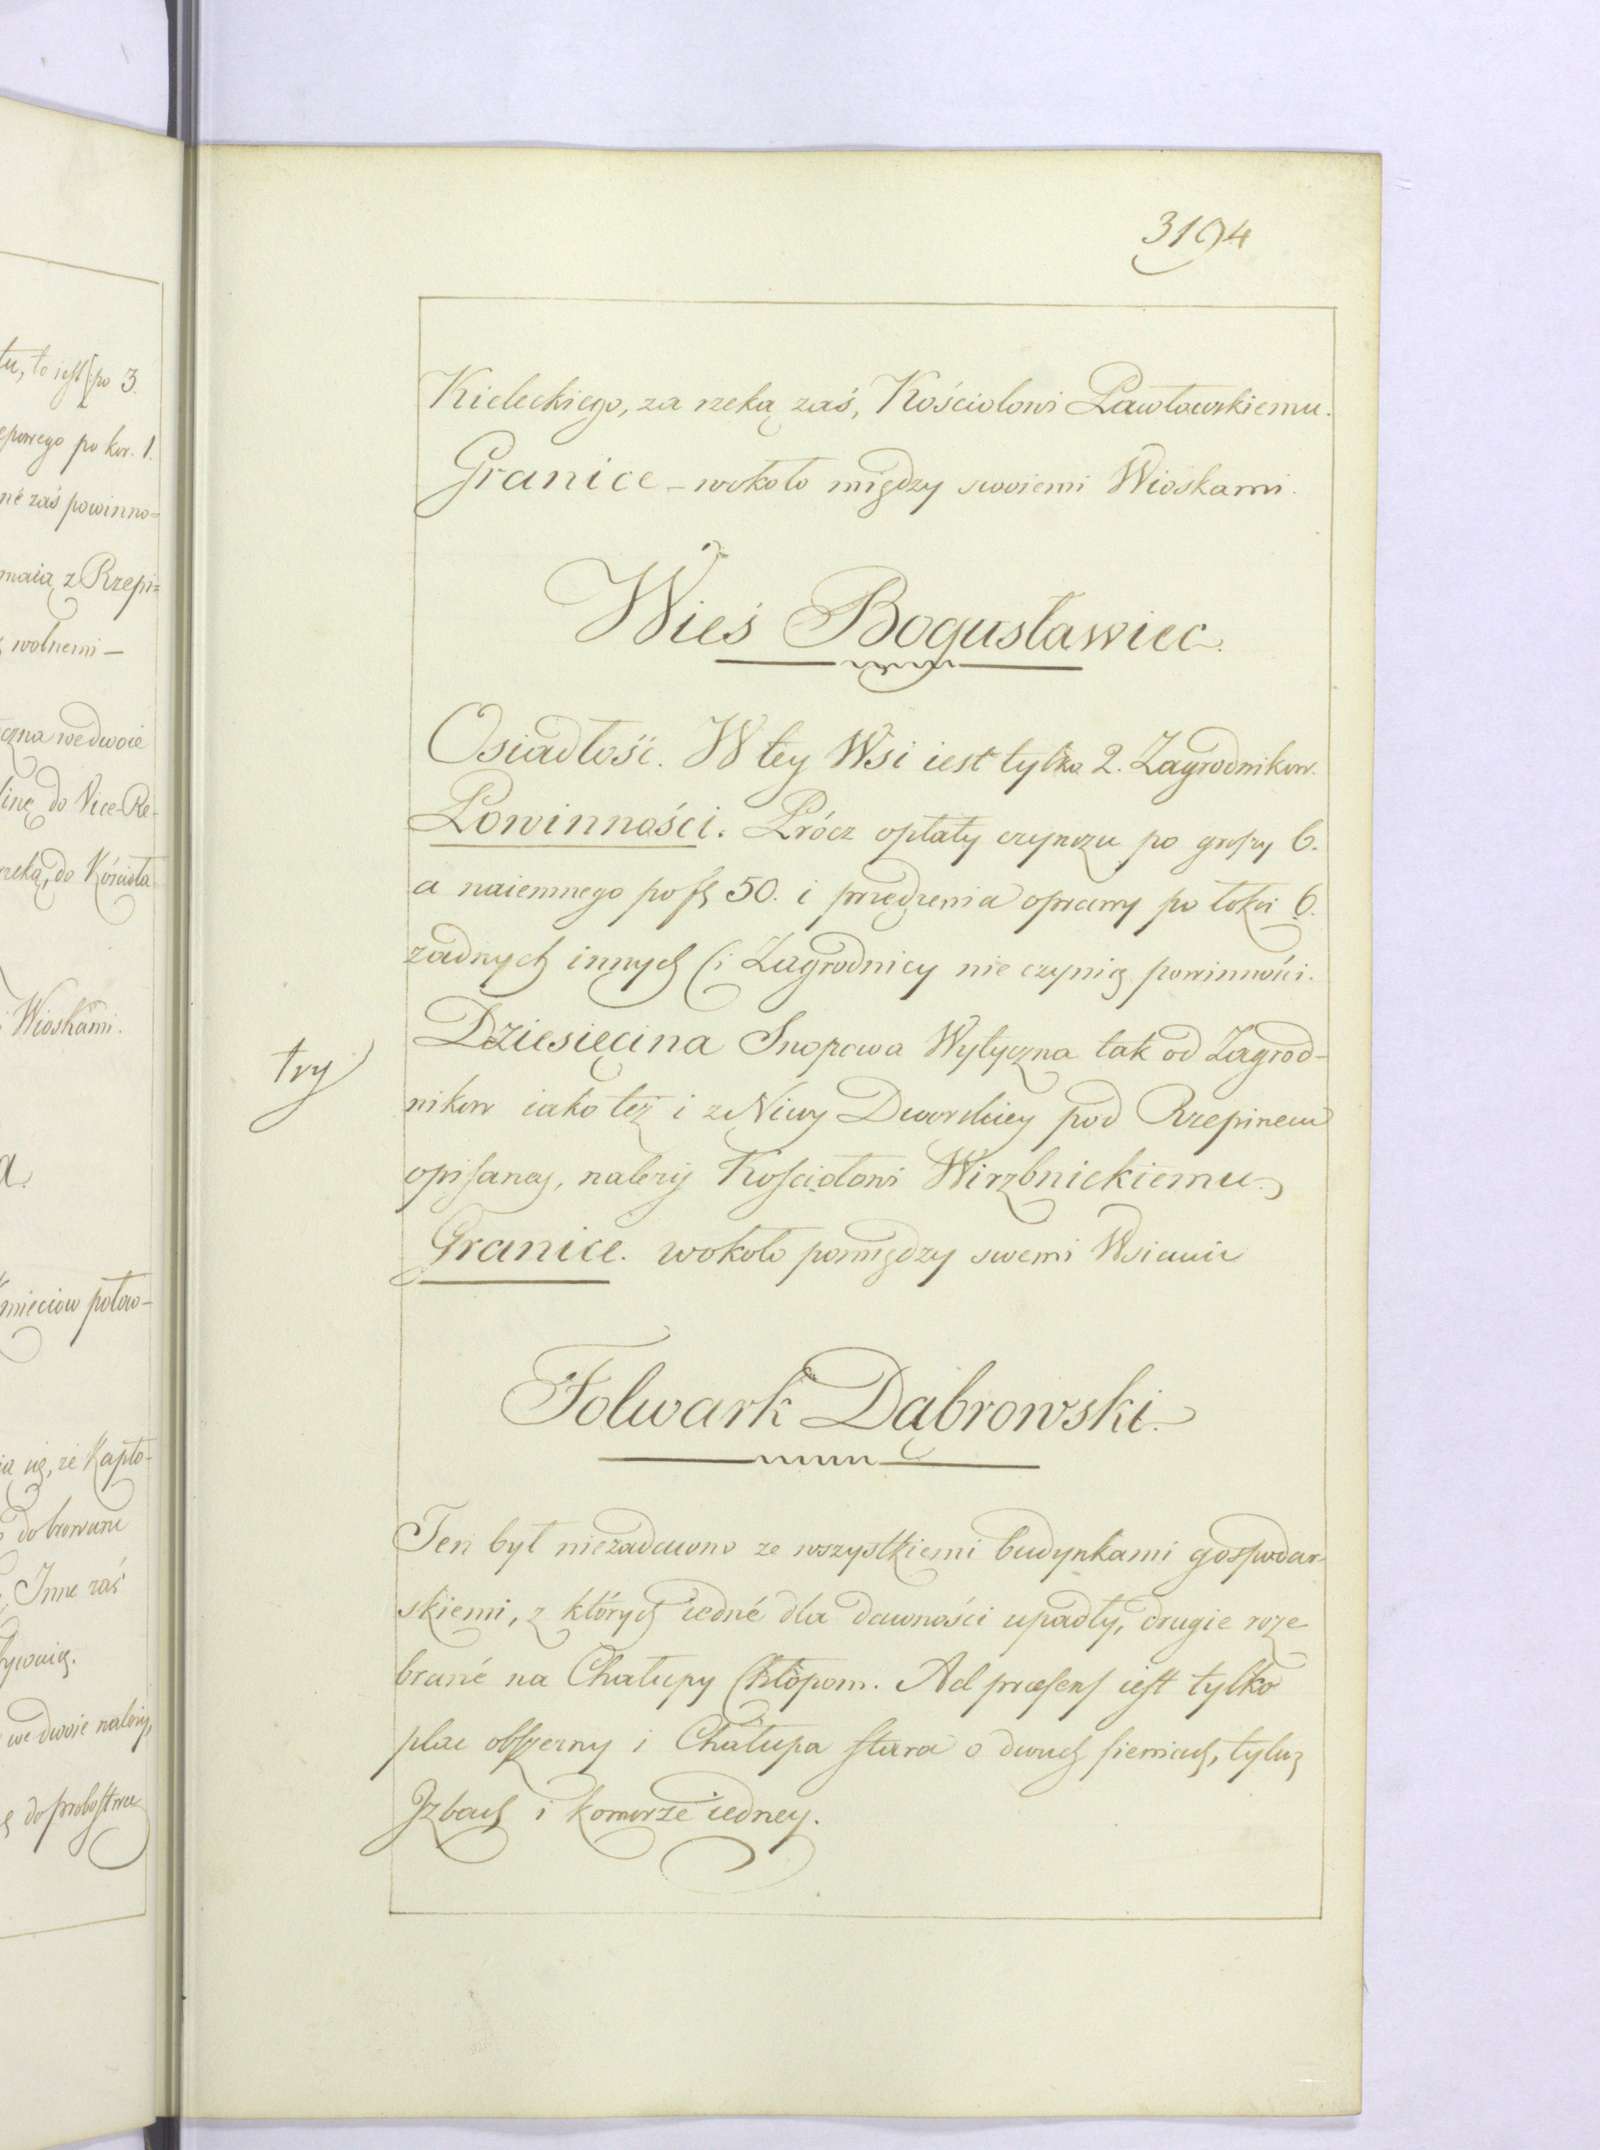 3194
tu, to iest po 3.
powego po kor. 1.
né zaś powinno=
maią z Rzepi=
wolnemi —
czna we dwoie
linę do Vice-Re-
rzeką, do Kościoła
Wioskami.
a.
mieciow potow-
ią się, że Kapło-
do browaru
Inne zaś
we dwoie należy,
do probostwa
Kieleckiego, za rzeką zaś, Kościołowi Pawłowskiemu.
Granice – wokoło między swoiemi Wioskami.
Wieś Bogusławiec.
Osiadłość. W tey Wsi iest tylko 2. Zagrodnikow.
Powinności. Prócz opłaty czynszu po groszy 6.
a naiemnego po fl 50. i przędzenia oprawy po łokci 6.
żadnych innych Ci Zagrodnicy nie czynią powinności.
Dziesięcina Snopowa Wytyczna tak od Zagrod-
try
nikow iako też i z Niwy Dworskiey pod Rzepinem
opisaney, należy Kościołowi Wirzbnickiemu.
Granice. wokoło pomiędzy swemi Wsiami
Folwark Dąbrowski.
Ten był niezadawno ze wszystkiemi budynkami gospodar-
skiemi, z których iedné dla dawności upadły, drugie roze
brané na Chałupy Chłopom. Ad præsens iest tylko
plac obszerny i Chałupa stara o dwuch sieniach, tyluż
Izbach i komorze iedney.